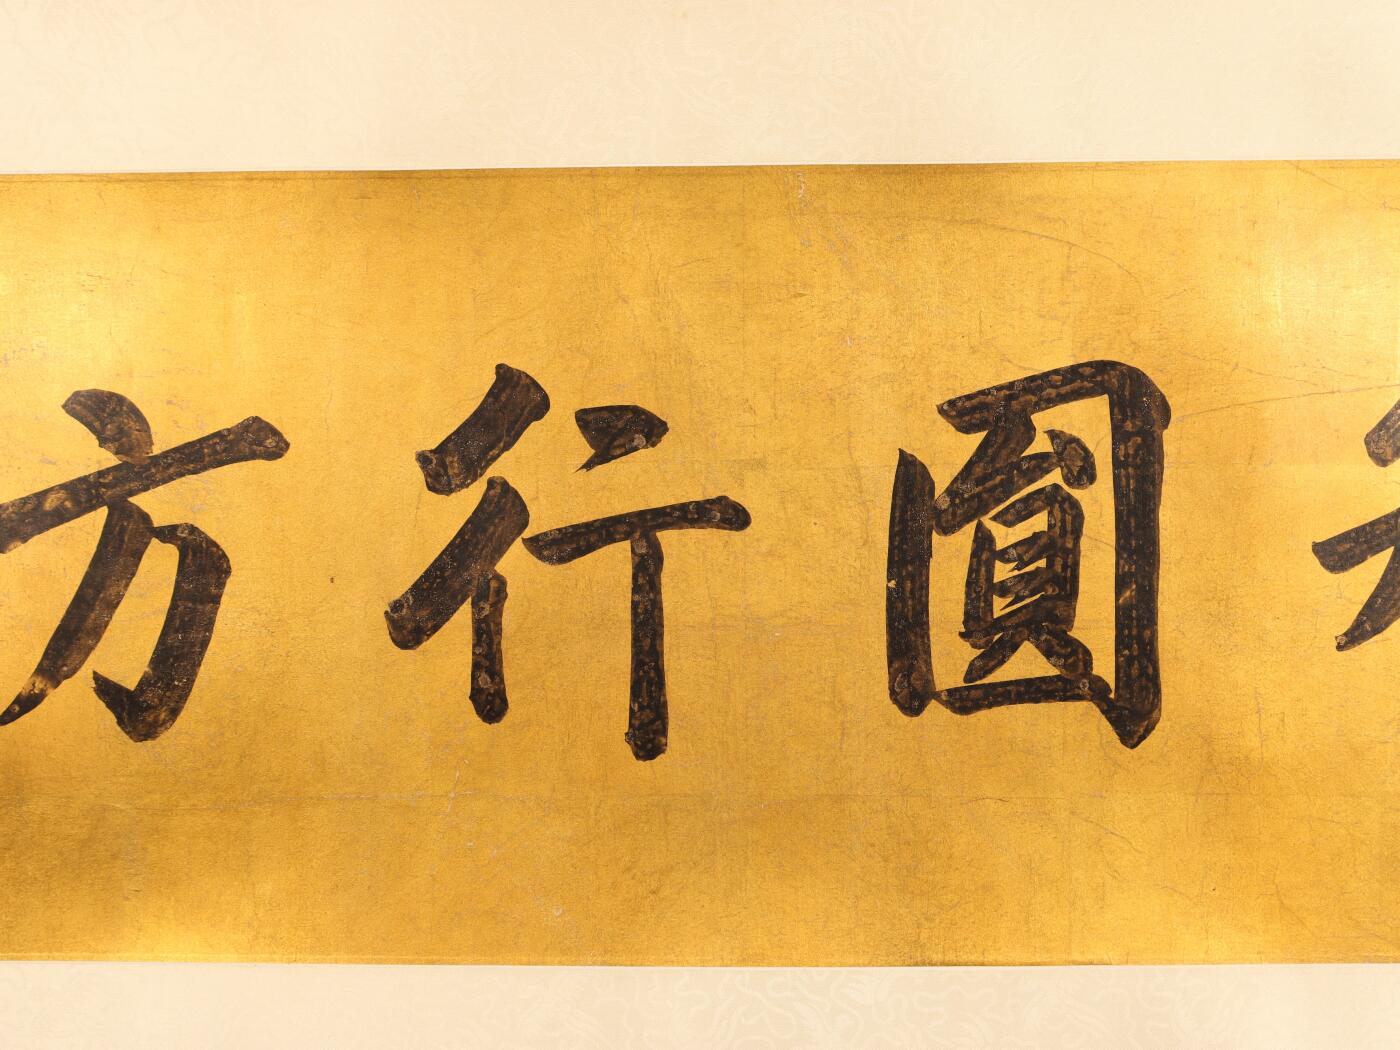 圓行方